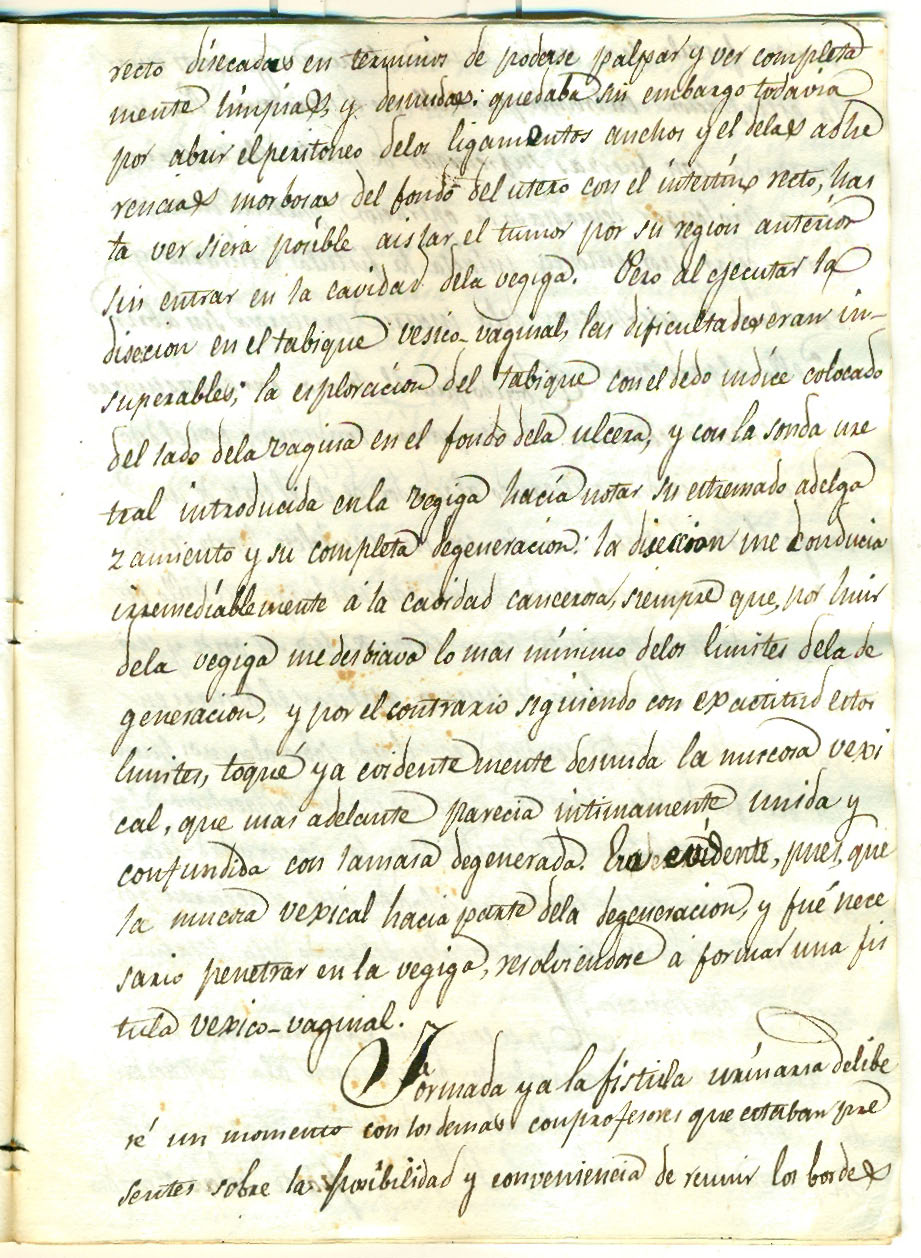 recto disecadas en terminos de poderse palpar y ver completa
mente limpias, y desnudas: quedaba sin embargo todavia
por abrir el peritoneo delos ligamentos anchos y el delas adhe
rencias morbosas del fondo del utero con el intestino recto, has
ta ver siera posible aislar el tumor por su region anterior
sin entrar en la cavidad dela vegiga. Pero al ejecutar la
diseccion en el tabique vesico-vaginal, las dificultades eran in-
superables; la esploracion del tabique con el dedo indice colocado
del lado dela vagina en el fondo dela ulcera, y con la sonda ure
tral introducida en la vegiga hacia notar su estremado adelga
zamiento y su completa degeneracion: la diseccion me conducia
irremediablemente á la cavidad cancerosa, siempre que, por huir
dela vegiga me desviava lo mas minimo delos limites dela de
generacion, y por el contrario siguiendo con exactitud estos
limites, toqué ya evidentemente desnuda la mucosa vexi
cal, que mas adelante parecia intimamente unida y
confundida con la masa degenerada. Era evidente, pues, que
la mucosa vexical hacia parte dela degeneracion, y fué nece
sario penetrar en la vegiga, resolviendose á formar una fis
tula vexico-vaginal.
Formada ya la fistula urinaria delibe
ré un momento con los demas comprofesores que estaban pre
sentes sobre la posibilidad y conveniencia de reunir los bordes